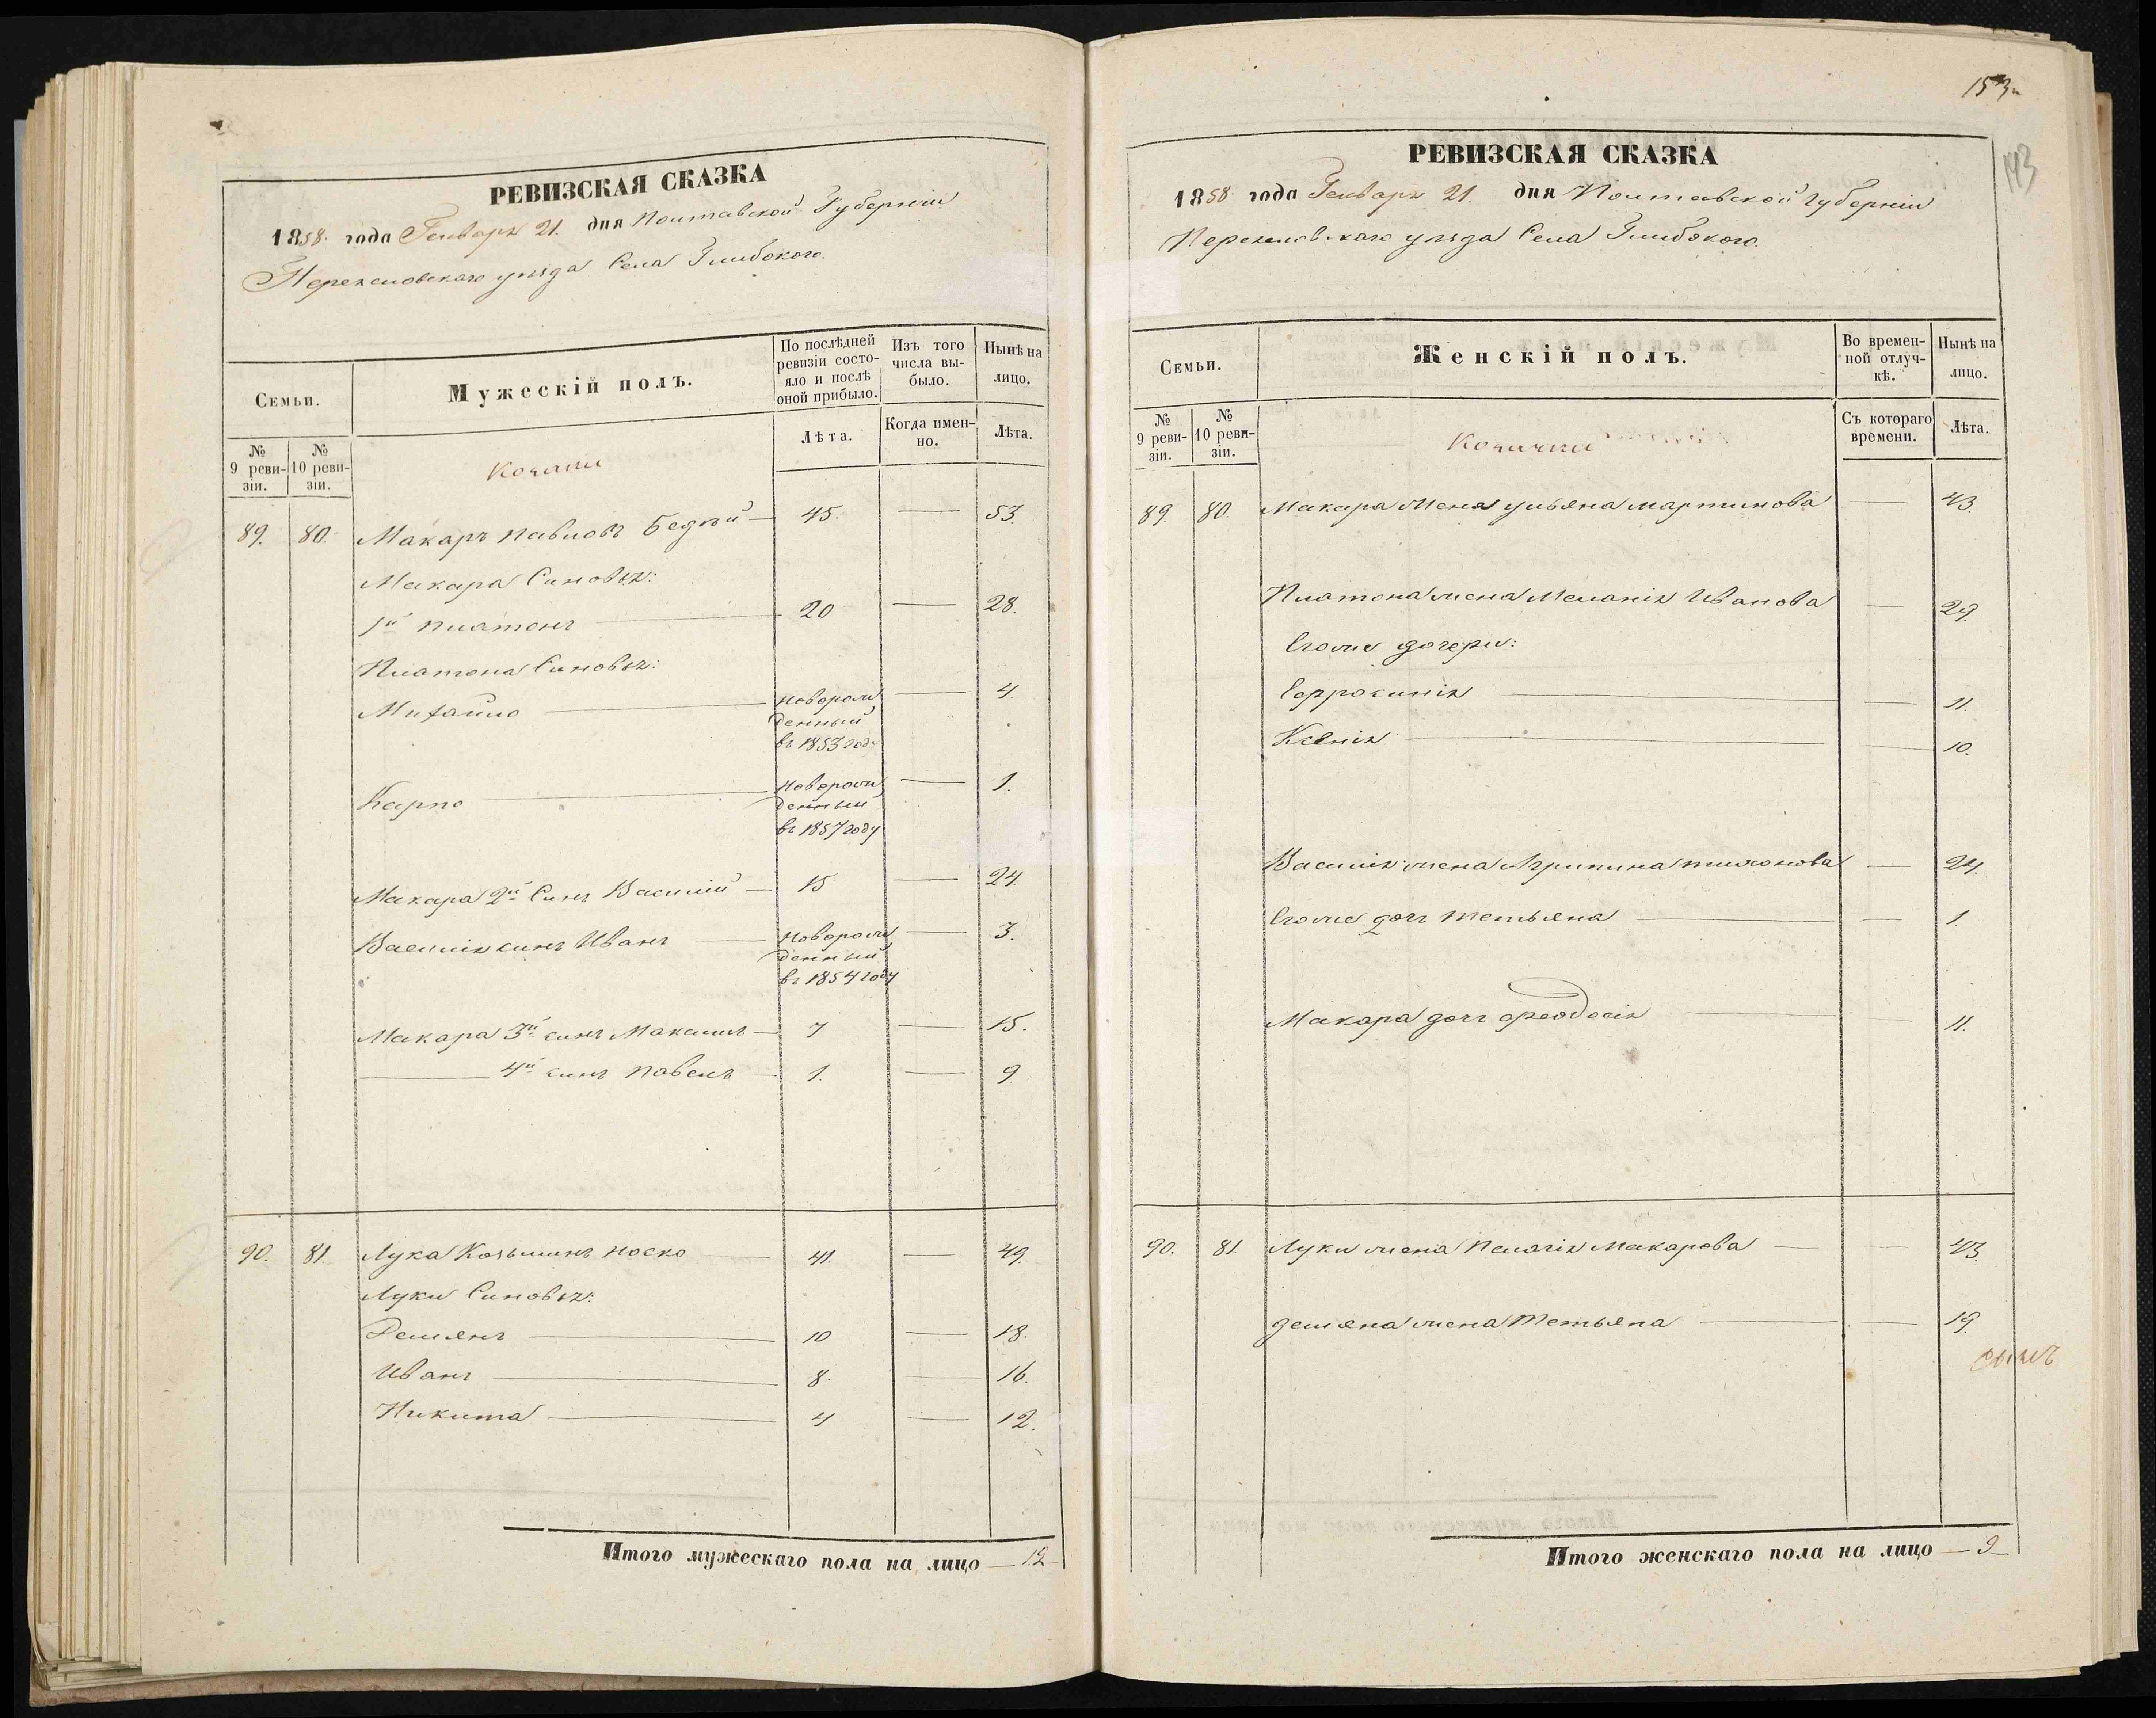 РЕВИЗСКАЯ СКАЗКА
1858. года Генваря 21. дня Полтавской Губерніи
Переяславскаго уѣзда Села Глибокого.
Семьи.
Мужескій полъ.
По послѣдней
ревизіи состо-
яло и послѣ
оной прибыло.
Изъ того
числа вы-
было.
Нынѣ на
лицо.
№
9 реви-
зіи.
№
10 реви-
зіи.
Лѣта.
Когда имен-
но.
Лѣта.
89. 80. Макаръ Павловъ Бедный — 45. — 53.
Макара Синовья:
1й Платонъ — 20 — 28.
Платона Синовья:
Михайло — новорож
денный
въ 1853 году — 4.
Карпо — новорож
денный
въ 1857 году — 1.
Макара 2й Синъ Василій — 15 — 24.
Василія синъ Иванъ — новорож
денный
въ 1854 году — 3.
Макара 3й синъ Максимъ — 7 — 15.
— 4й синъ Павелъ — 1. — 9
90. 81. Лука Козьминъ Носко — 41. — 49.
Луки Синовья:
Демянъ — 10 — 18.
Иванъ — 8. — 16.
Никита — 4 — 12.
Итого мужескаго пола на лицо — 12
153
143
РЕВИЗСКАЯ СКАЗКА
1858 года Генваря 21. дня Полтавской Губерніи
Переяславскаго уѣзда Села Глибокого.
Семьи.
Женскій полъ.
Во времен-
ной отлуч-
кѣ.
Нынѣ на
лицо.
№
9 реви-
зіи.
№
10 реви-
зіи.
Съ котораго
времени.
Лѣта.
89. 80. Макара жена Ульяна Мартинова — 43.
Платона жена Меланія Иванова — 29.
Егоже дочери:
Ефросинія — 11.
Ксенія — 10.
Василія жена Агрипина Тихонова — 24.
Егоже дочь Тетьяна — 1.
Макара дочь Феодосія — 11.
90. 81. Луки жена Пелагія Макарова — 43.
Демяна жена Тетьяна — 19.
Итого женскаго пола на лицо — 9